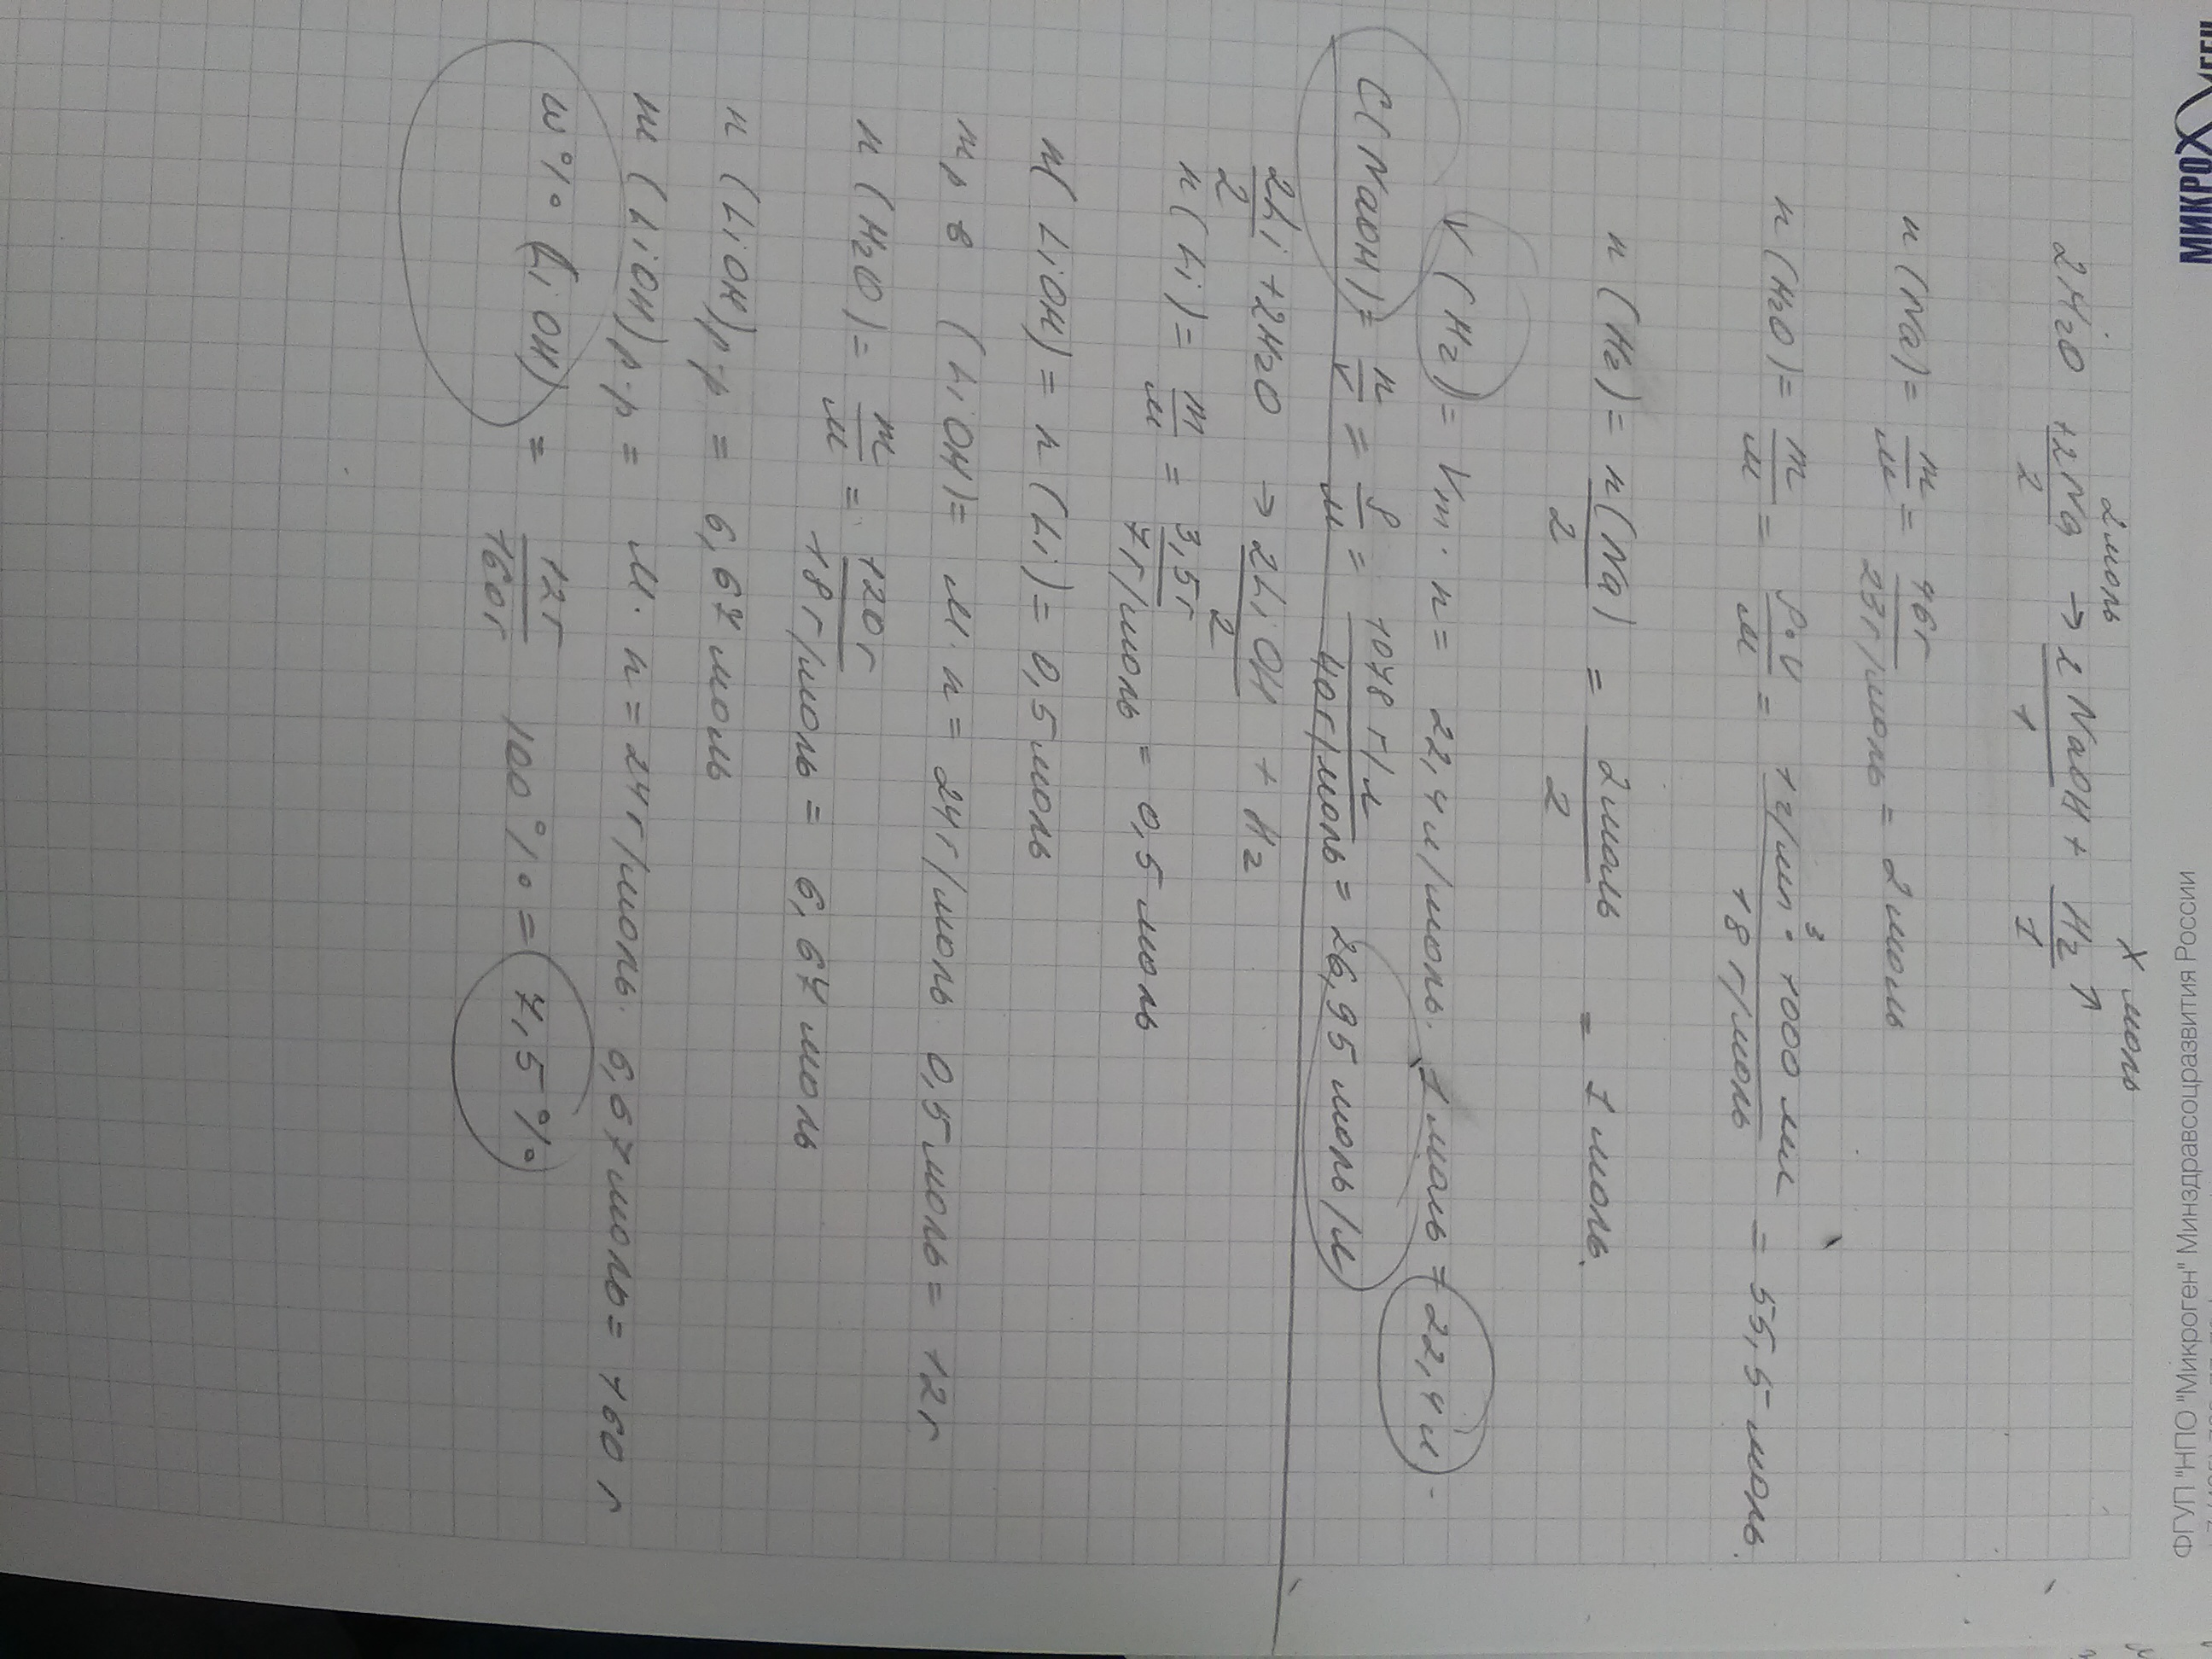 МИКРОГЕН
ФГУП "НПО "Микроген" Минздравсоцразвития России
2 моль
x моль
2H2O + 2Na → 2NaOH + H2↑
2 1 1
n(Na) = m/M = 46г/23г/моль = 2 моль
n(H2O) = m/M = ρ·V/M = 1г/мл³ · 1000 мл/18 г/моль = 55,5 моль.
n(H2) = n(Na)/2 = 2 моль/2 = 1 моль.
V(H2) = Vm · n = 22,4 л/моль · 1 моль = 22,4 л.
C(NaOH) = n/V = ρ/M = 1078 г/л/40г/моль = 26,95 моль/л
2Li + 2H2O → 2LiOH + H2
2 2
n(Li) = m/M = 3,5г/7г/моль = 0,5 моль
n(LiOH) = n(Li) = 0,5 моль
m р в (LiOH) = M·n = 24г/моль · 0,5 моль = 12г
n(H2O) = m/M = 120г/18г/моль = 6,67 моль
n(LiOH)р-р = 6,67 моль
m(LiOH)р-р = M·n = 24г/моль · 6,67 моль = 160 г
w%(LiOH) = 12г/160г 100% = 7,5%